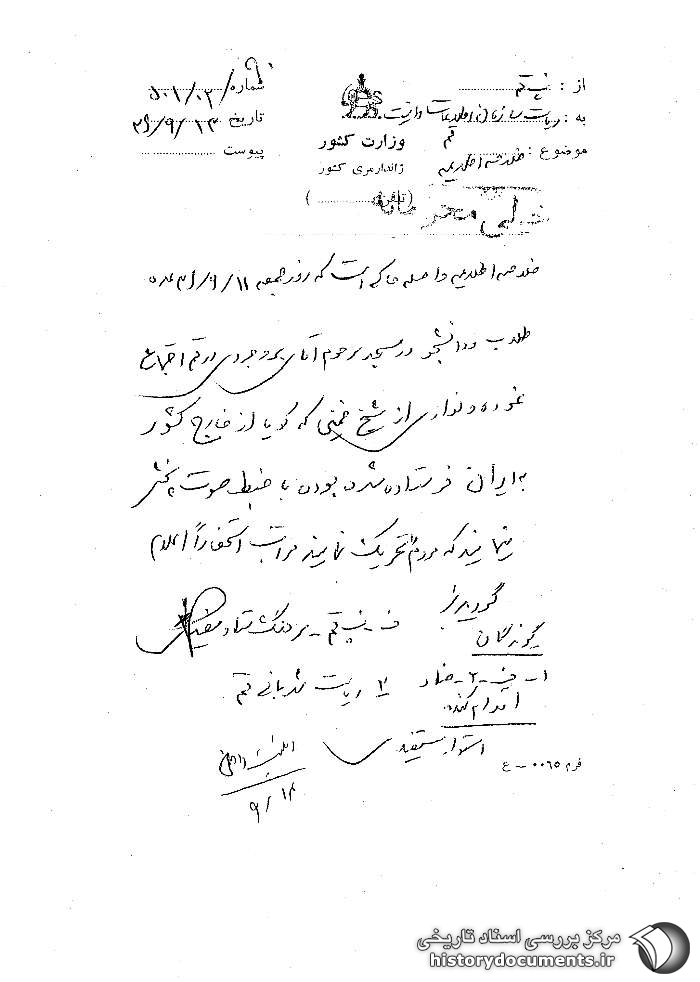 از : قم
شماره ۵۰۱/۰۳/
به : ریاست سازمان اطلاعات و امنیت قم
تاریخ ۳۶/۹/۱۳
وزارت کشور
موضوع : خلاصه اطلاعیه
پیوست
ژاندارمری کشور
(تلفن )
خیلی محرمانه
خلاصه اطلاعیه واصله حاکی است که روز جمعه ۳۶/۹/۱۱ عده
طلاب و دانشجو در مسجد مرحوم آقای بروجردی در قم اجتماع
نموده و نواری از شیخ خمینی که گویا از خارج کشور
به ایران فرستاده شده بوده با ضبط صوت پخش
مینمایند که مردم تحریک نمایند مراتب استحضاراً اعلام
گردید
ف - قم - سرهنگ ستاد
گیرندگان
۱- ۲- ۲ ریاست شهربانی قم
اقدام کننده
استوار
۹/۱۴
فرم ۰۰۶۵ - ع
مرکز بررسی اسناد تاریخی
historydocuments.ir